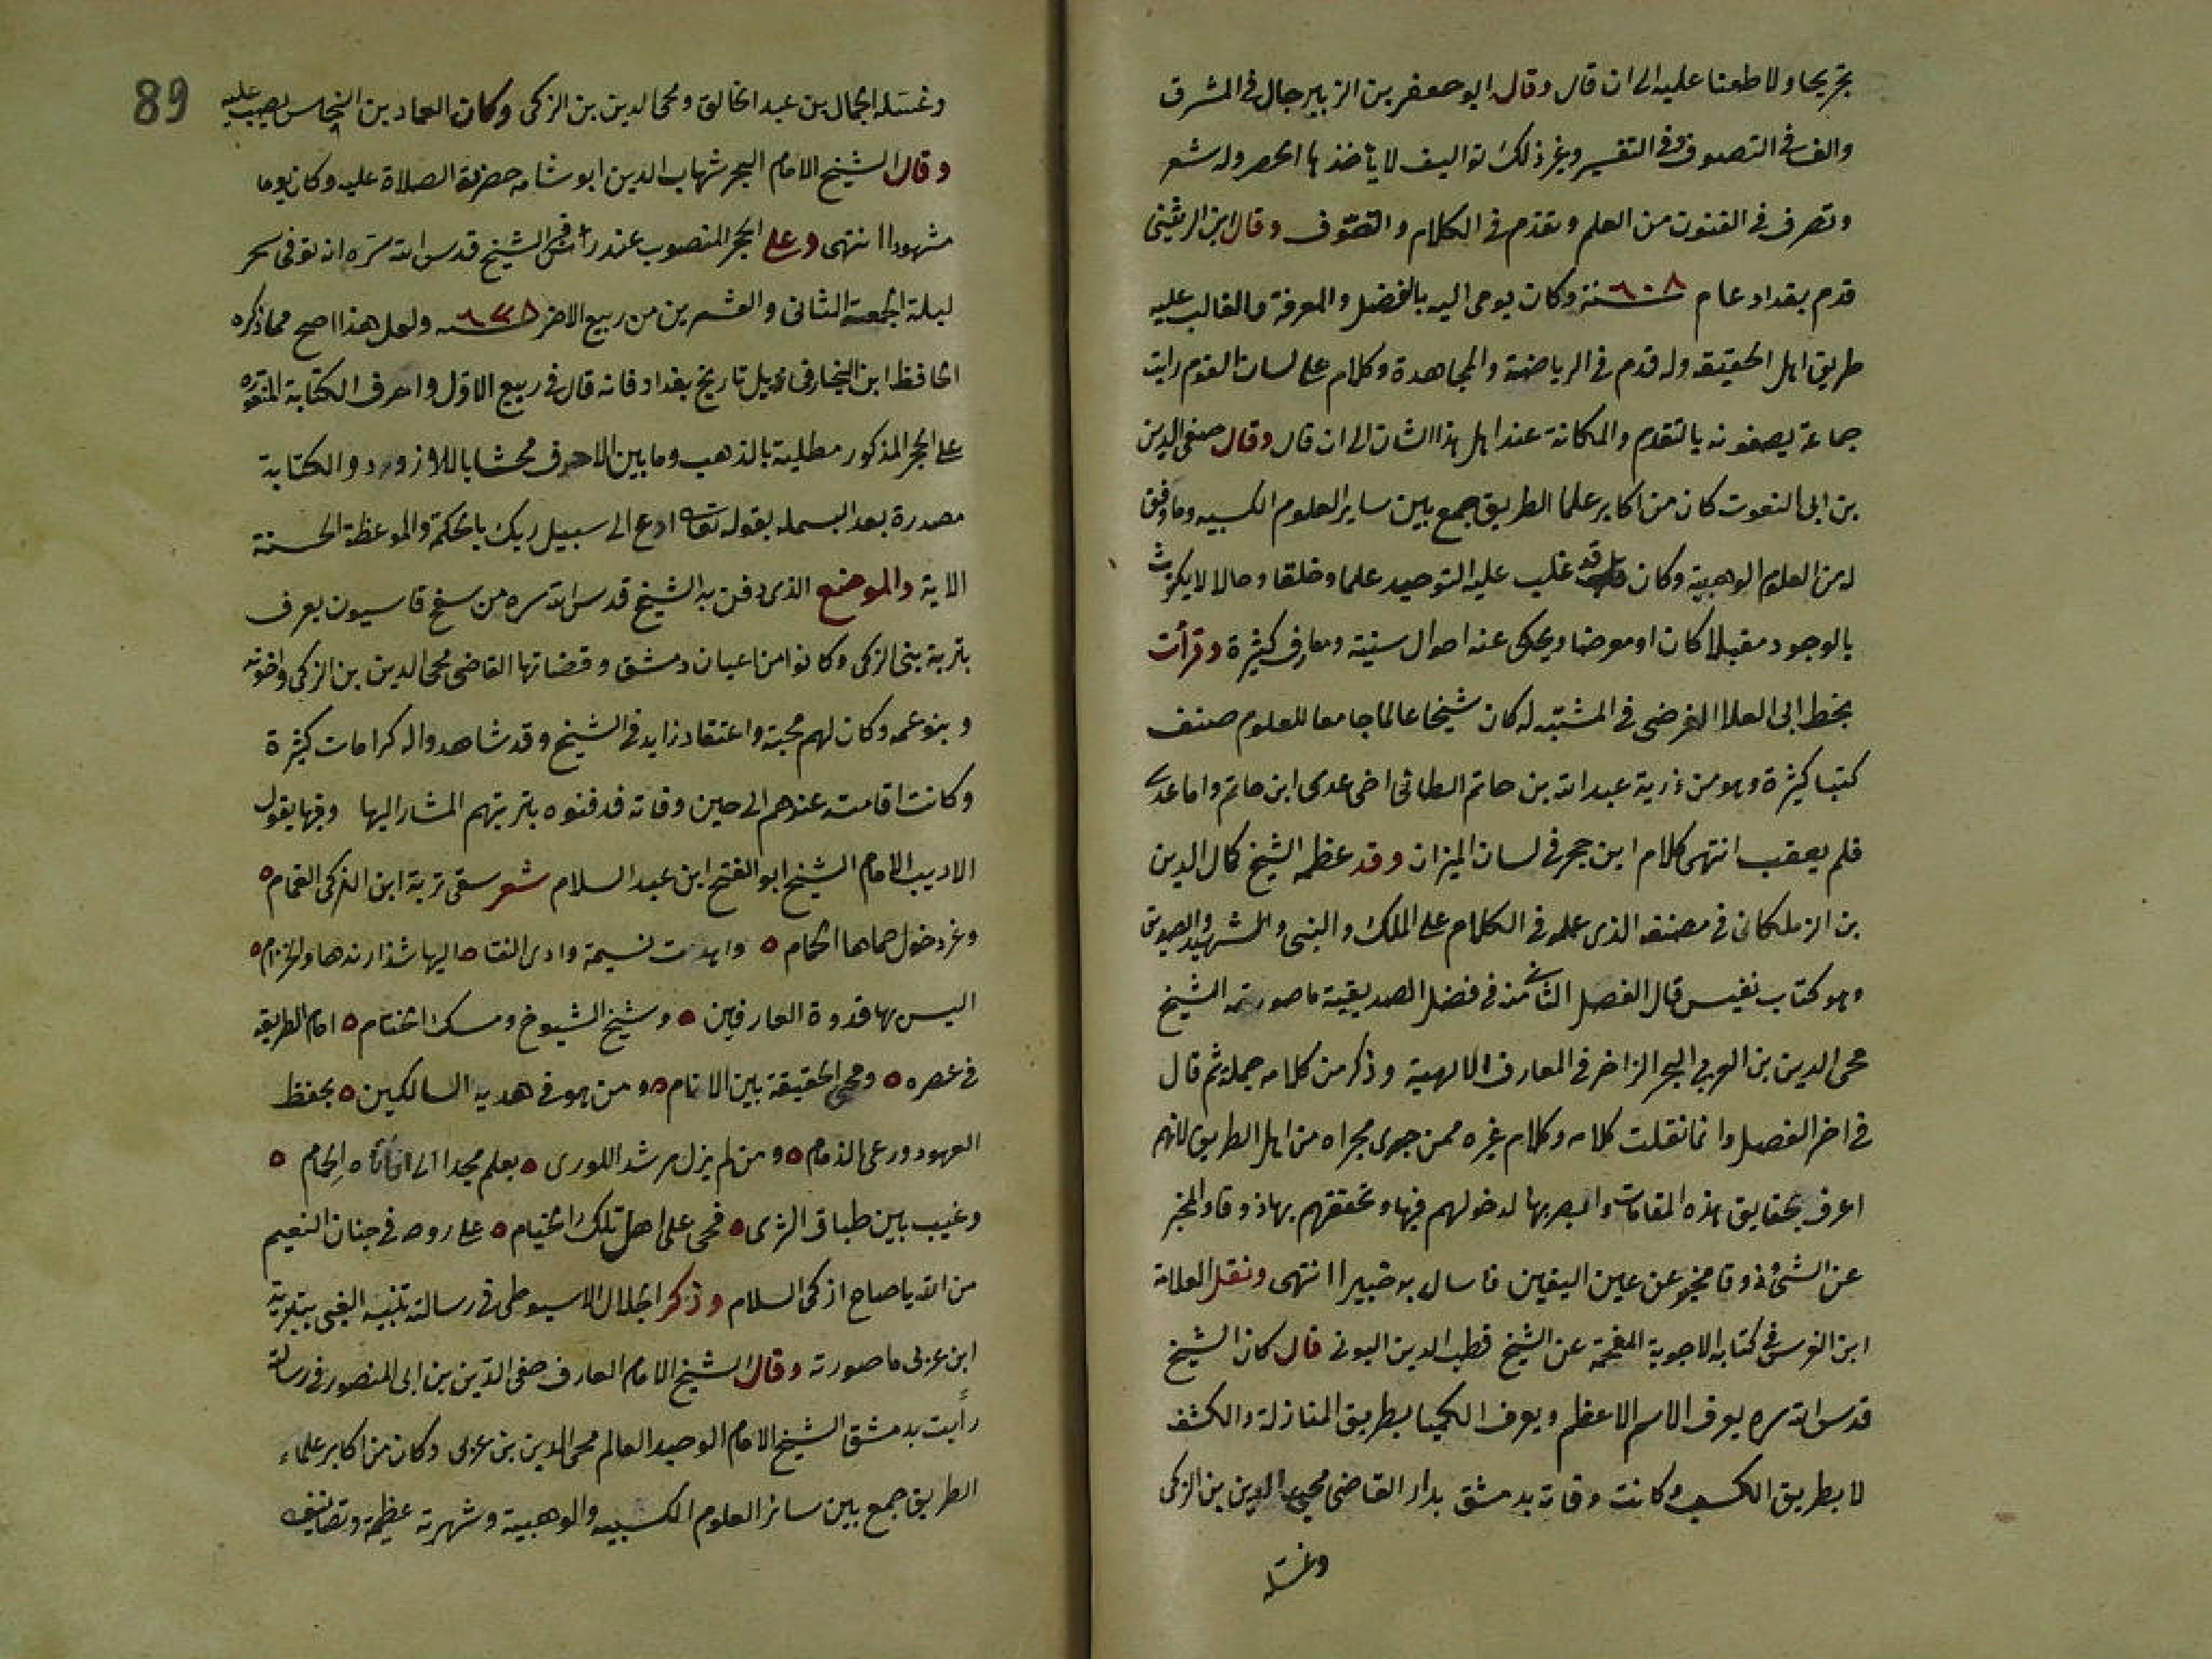 بتجريحا ولا طعنا عليه الى ان قال وقال ابو جعفر بن الزبير جال في المشرق
والف في التصوف وفى التفسير وغير ذلك تواليف لا يأخذها الحصر وله شعر
وتصرف في الفنون من العلم وتقدم في الكلام والتصوف وقال ابن الدبيثى
قدم بغداد عام ٦٠٨ سنة وكان يومى اليه بالفضل والمعرفة والغالب عليه
طريق اهل الحقيقه وله قدم في الرياضة والمجاهدة وكلام على لسان القوم رايت
جماعة يصفونه بالتقدم والمكانة عند اهل هذا الشان الى ان قال وقال صفى الدين
بن ابى المنصور كان من اكابر علما الطريق جمع بين ساير العلوم الكسبيه وما وفق
له من العلوم الوهبية وكان قد غلب عليه التوحيد علما وخلقا وحالا لا يكترث
بالوجود مقبلا كان او معرضا ويحكى عنه احوال سنية ومعارف كثيرة وقرأت
بخط ابى العلا الفرضى في المشتبه له كان شيخا عالما جامعا للعلوم صنف
كتبا كثيرة وهو من ذرية عبد الله بن حاتم الطائى اخى عدى ابن حاتم واما عدى
فلم يعقب انتهى كلام ابن حجر في لسان الميزان وقد عظمه الشيخ كمال الدين
بن الزملكانى في مصنفه الذى عمله في الكلام على الملك والنبى والشهيد والصديق
وهو كتاب نفيس قال الفصل الثانى منه في فضل الصديقية ما صورته الشيخ
محى الدين بن العربي البحر الزاخر في المعارف الالهية وذكر من كلامه جملة ثم قال
في اخر الفصل وانما نقلت كلامه وكلام غيره ممن جرى مجراه من اهل الطريق لانهم
اعرف بحقايق هذه المقامات وابصر بها لدخولهم فيها وتحققهم بها ذوقا والمخبر
عن الشئ ذوقا مخبر عن عين اليقين فاسال به خبيرا انتهى ونقل العلامة
ابن الغرس في كتابه الاجوبة المفحمة عن الشيخ قطب الدين اليونى قال كان الشيخ
قدس الله سره يعرف الاسم الاعظم ويعرف الكيميا بطريق المنازلة والكشف
لا بطريق الكسب وكانت وفاته بدمشق بدار القاضى محيى الدين بن الزكى
وغسله
89
وغسله الجمال بن عبد الخالق ومحى الدين بن الزكى وكان العماد بن النحاس يصب عليه
وقال الشيخ الامام البحر شهاب الدين ابو شامه حضرت الصلاة عليه وكان يوما
مشهودا انتهى وعلى الحجر المنصوب عند رأس الشيخ قدس الله سره انه توفى سحر
ليلة الجمعة الثانى والعشرين من ربيع الاخر سنة ٦٣٨ ولعل هذا اصح مما ذكره
الحافظ ابن النجار في ذيل تاريخ بغداد فانه قال في ربيع الاول واحرف الكتابة المنقوره
على الحجر المذكور مطلية بالذهب وما بين الاحرف محشا باللازورد والكتابة
مصدرة بعد البسمله بقوله تعالى ادع الى سبيل ربك بالحكمة والموعظة الحسنة
الاية والموضع الذى دفن به الشيخ قدس الله سره من سفح قاسيون يعرف
بتربة بنى الزكى وكانوا من اعيان دمشق وقضاتها القاضى محى الدين بن الزكى واخوته
وبنو عمه وكان لهم محبة واعتقاد زايد في الشيخ وقد شاهدوا له كرامات كثيرة
وكانت اقامته عندهم الى حين وفاته فدفنوه بتربتهم المشار اليها وفيها يقول
الاديب الامام الشيخ ابو الفتح ابن عبد السلام شعر سقى تربة ابن الزكى الغمام ه
وغرد حول حماها الحمام ه واهدت نسيمة وادى النقا ه اليها شذا رندها والخزام ه
اليس بها قدوة العارفين ه وشيخ الشيوخ ومسك الختام ه امام الطريقه
في عصره ه ومحى الحقيقة بين الانام ه ومن هو في هديه السالكين ه بحفظ
العهود ورعى الذمام ه ومن لم يزل مرشد اللورى ه بعلم مجدا الى ان اتاه الحمام ه
وغيب بين طباق الثرى ه فحى على اهل تلك الخيام ه على روحه في جنان النعيم
من الله يا صاح ازكى السلام وذكر الجلال الاسيوطى في رسالته تنبيه الغبى بتبرية
ابن عربى ما صورته وقال الشيخ الامام العارف صفى الدين بن ابى المنصور في رسالته
رأيت بدمشق الشيخ الامام الوحيد العالم محى الدين بن عربى وكان من اكابر علماء
الطريق جمع بين سائر العلوم الكسبيه والوهبية وشهرته عظيمة وتصانيفه